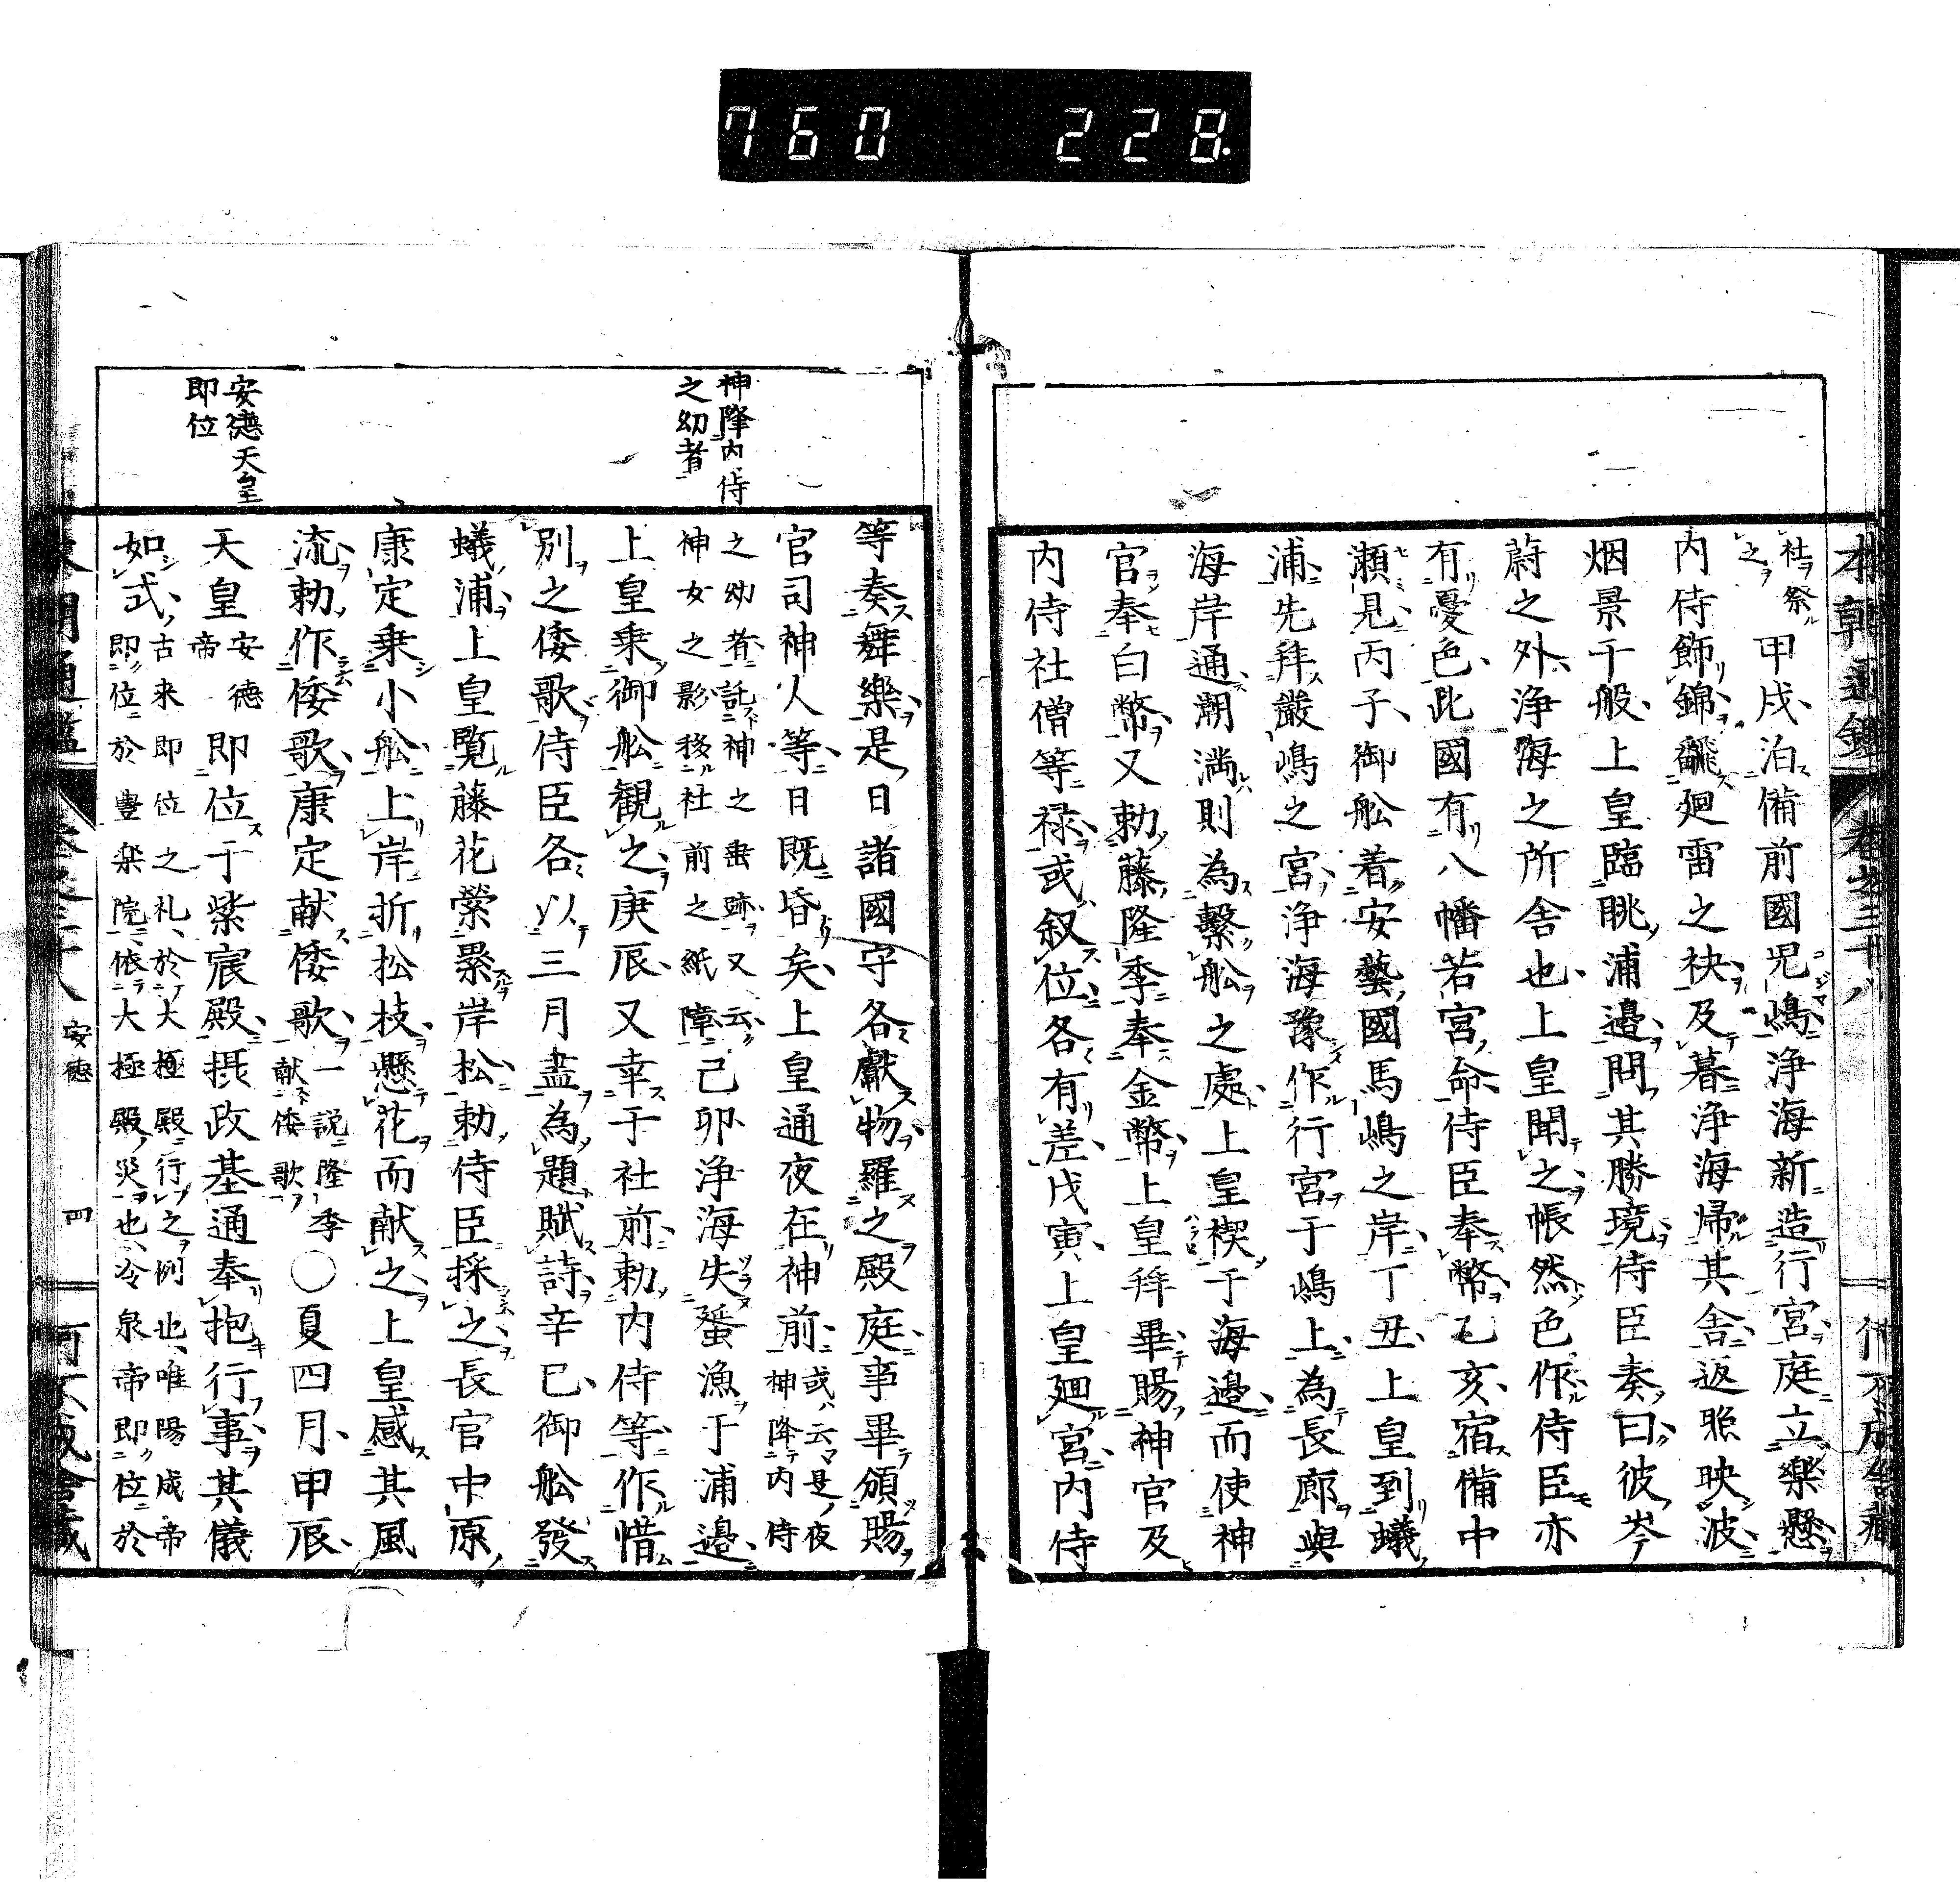 760 228
本朝通鑑 卷之三十八
社祭
之
甲戌泊備前國児嶋浄海新造行宮庭立樂懸
内侍飾錦飜廻雷之袂及暮浄海帰其舎返照映波
烟景千般上皇臨眺浦邉問其勝境侍臣奏曰彼岑
蔚之外浄海之所舎也上皇聞之帳然色作侍臣亦
有憂色此國有八幡若宮命侍臣奉幣乙亥宿備中
瀬見丙子御舩着安藝國馬嶋之岸丁丑上皇到蟻
浦先拜嚴嶋之宮浄海豫作行宮于嶋上為長廊與
海岸通潮満則為繫舩之處上皇禊于海邉而使神
官奉白幣又勅藤隆季奉金幣上皇拜畢賜神官及
内侍社僧等禄或叙位各有差戊寅上皇廻宮内侍
神降内侍
之幼者
安德天皇
即位
等奏舞樂是日諸國守各獻物羅之殿庭事畢頒賜
官司神人等日既昏矣上皇通夜在神前或云是夜
神降内侍
之幼者託神之垂跡又云
神女之影移社前之紙障己卯浄海失蜑漁于浦邉
上皇乗御舩観之庚辰又幸于社前勅内侍等作惜
別之倭歌侍臣各以三月盡為題賦詩辛巳御舩發
蟻浦上皇覧藤花縈纍岸松勅侍臣採之長官中原
康定乗小舩上岸折松枝懸花而献之上皇感其風
流勅作倭歌康定献倭歌一説隆季
献倭歌〇夏四月甲辰
天皇安德
帝即位于紫宸殿摂政基通奉抱行事其儀
如式古来即位之礼於大極殿行之例也唯陽成帝
即位於豊楽院依大極殿災也冷泉帝即位於
安德 四